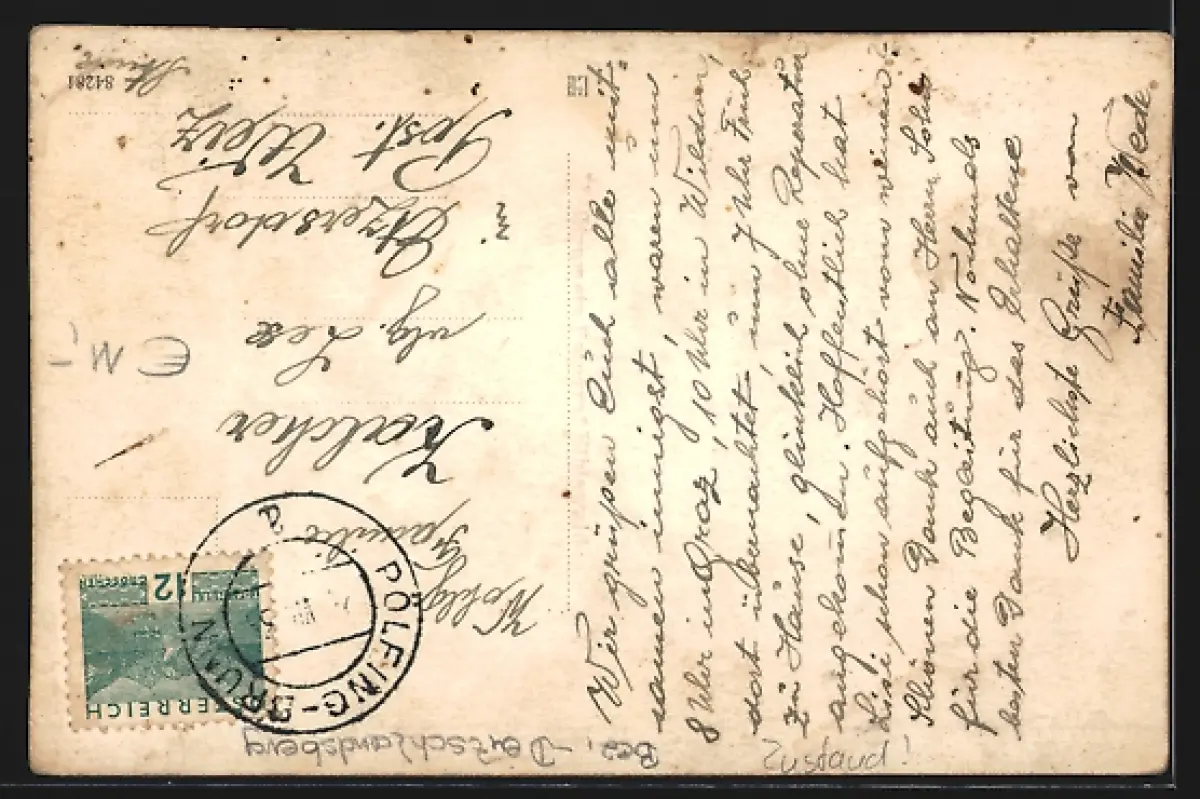 Wir grüßen Euch alle mit-
samen innigst, waren um
8 Uhr in Graz, 10 Uhr in Wildon,
dort übernachtet, um 7 Uhr Früh
zu Hause, glücklich ohne Reperatur
angekommen. Hoffentlich hat
Lisi schon aufgehört vom weinen?
Schönen Dank auch an Herrn Sohn
für die Begleitung. Nochmals
besten Dank für das Erhaltene
Herzlichste Grüße von
Familie
Wohlg.
Familie
Kalcher
vlg. Lex
in Etzersdorf
Post. Weiz
Stmk
84281
€ M,-
PÖLFING-BRUNN
A
12
GROSCHEN
ÖSTERREICH
Bez. Deutschlandsberg
Zustand!